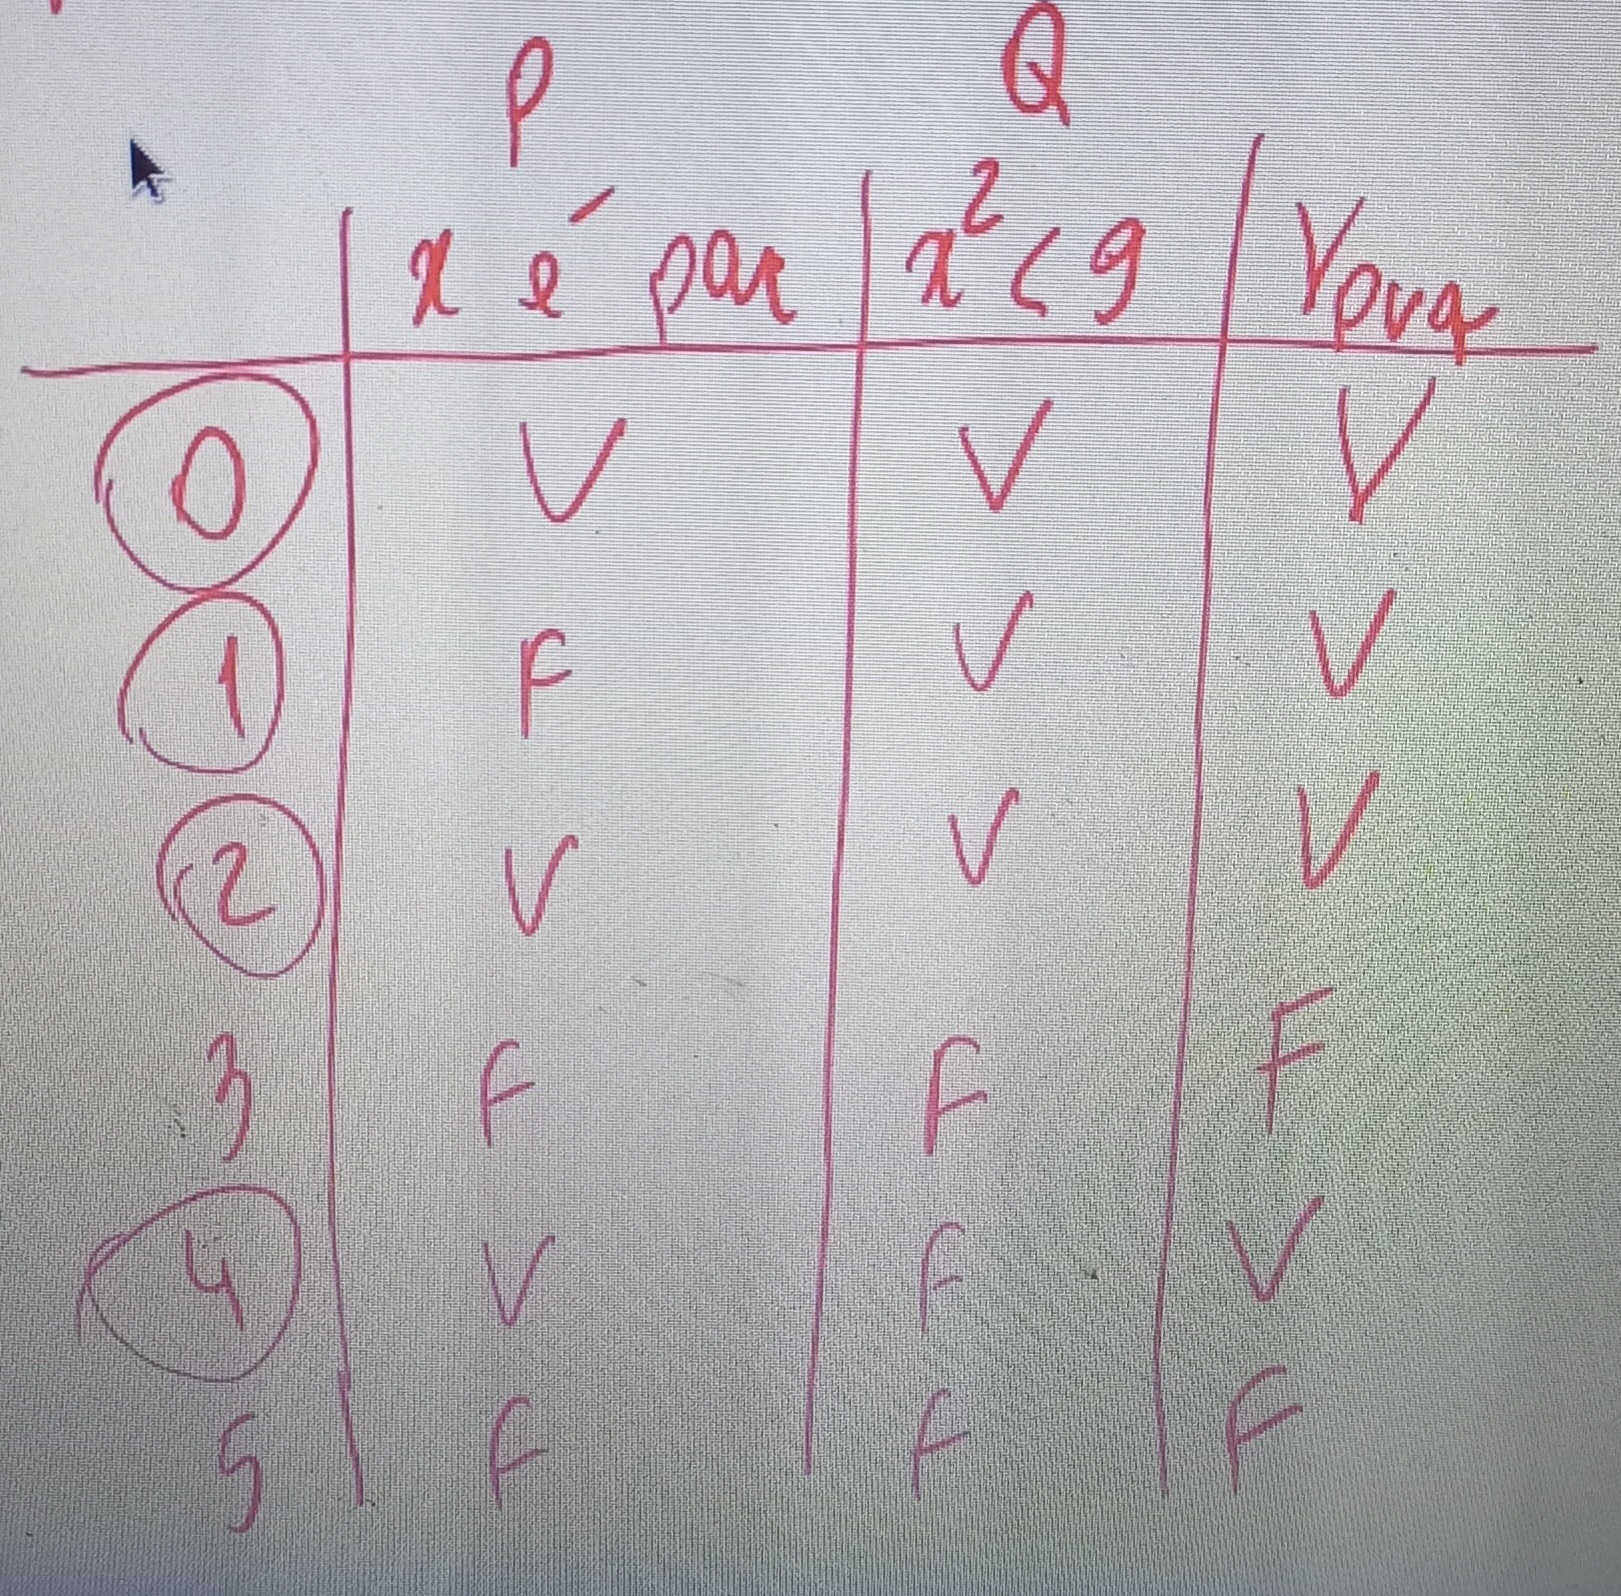 P Q
x é par x² < 9 V_{pvq}
0 V V V
1 F V V
2 V V V
3 F F F
4 V F V
5 F F F